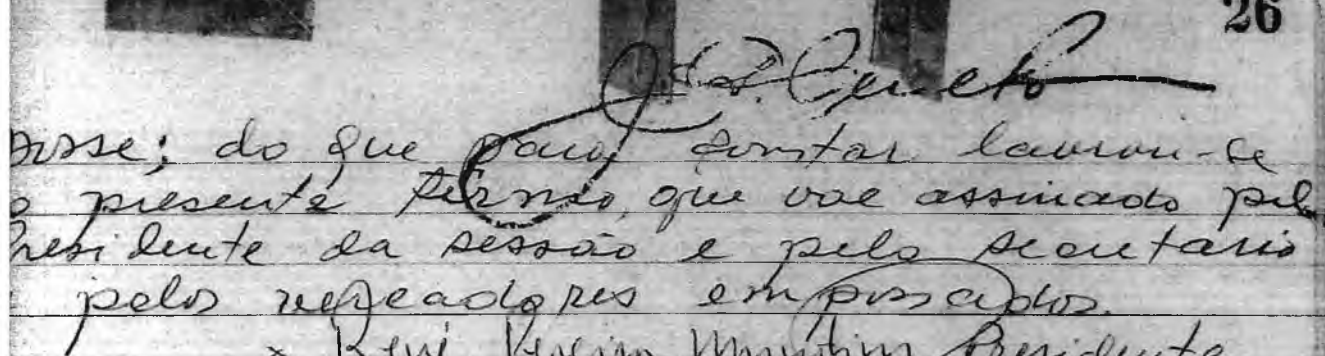 26
posse; do que para constar lavrou-se
o presente termo, que vae assinado pelo
Presidente da sessão e pelo secretario
pelos vereadores empossados.
Presidente